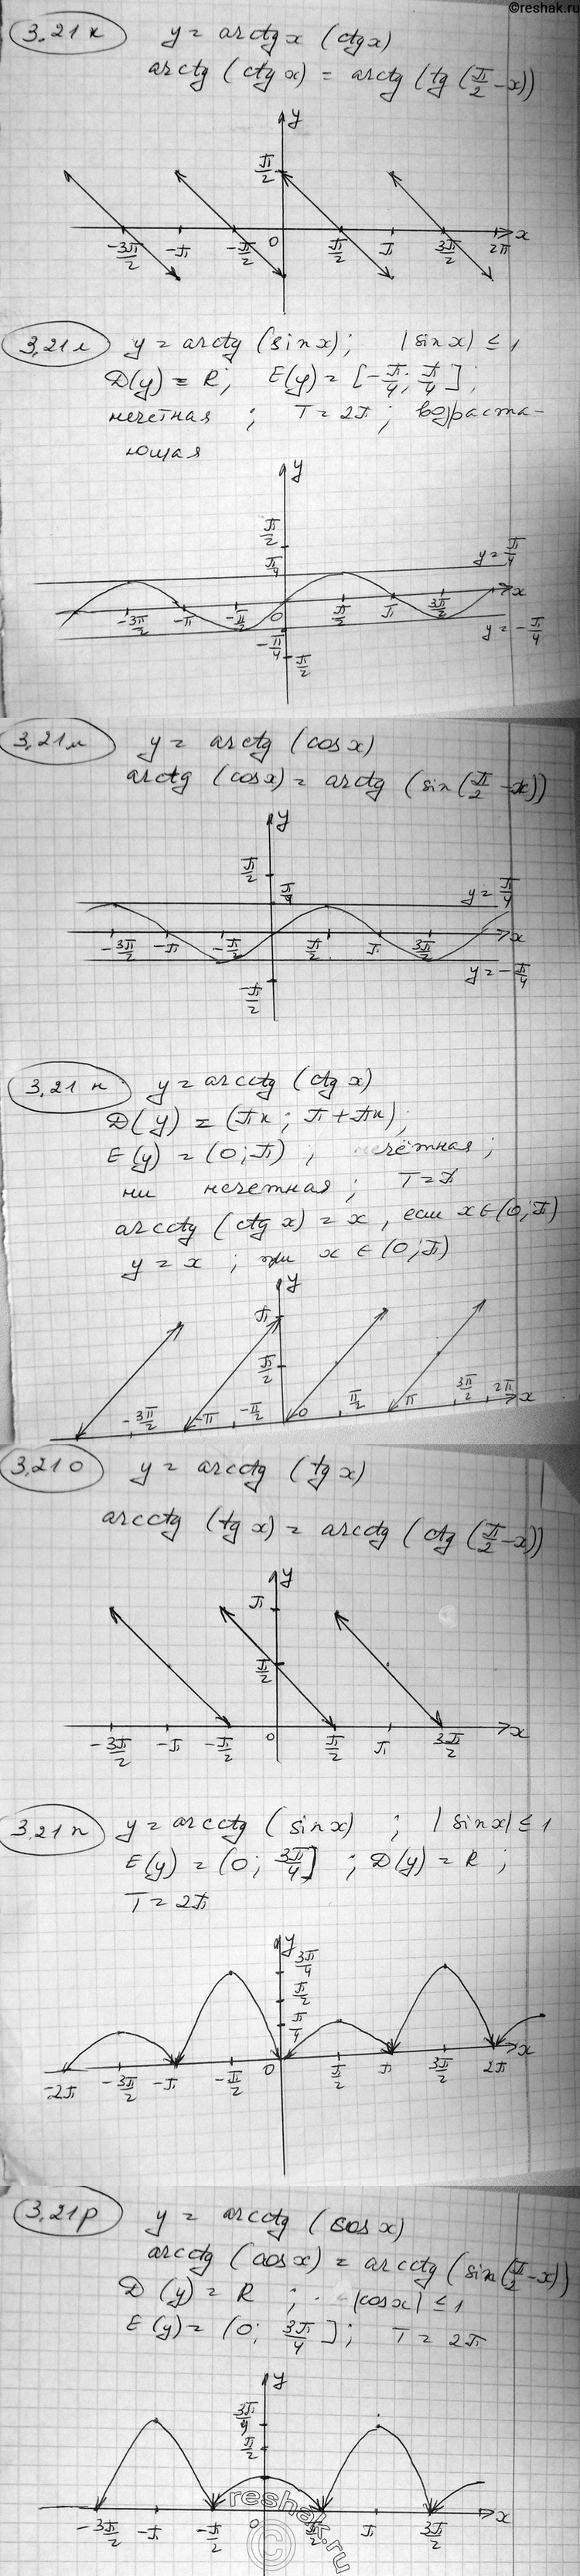 ©reshak.ru
3.21к y = arctgx (ctgx)
arctg (ctg x) = arctg (tg (π/2 - x))
y
π/2
-3π/2 -π -π/2 0 π/2 π 3π/2 2π x
3.21л y = arctg (sinx); |sinx| ≤ 1
D(y) = R; E(y) = [-π/4; π/4];
нечетная ; T = 2π ; возраста-
ющая
y
π/2
π/4 y = π/4
-3π/2 -π -π/2 0 π/2 π 3π/2 x
-π/4 y = -π/4
π/2
3.21м y = arctg (cosx)
arctg (cosx) = arctg (sin(π/2 - x))
y
π/2
π/4 y = π/4
-3π/2 -π -π/2 π/2 π 3π/2 x
y = -π/4
-π/2
3.21н y = arcctg (ctg x)
D(y) = (πк; π + πк);
E(y) = (0; π) ; чётная;
ни нечетная; T = π
arcctg (ctg x) = x, если x ∈ (0; π)
y = x ; при x ∈ (0; π)
y
π
π/2
-3π/2 -π -π/2 0 π/2 π 3π/2 2π x
3.21о y = arcctg (tg x)
arcctg (tg x) = arcctg (ctg (π/2 - x))
y
π
π/2
-3π/2 -π -π/2 0 π/2 π 3π/2 x
3.21п y = arcctg (sinx) ; |sinx| ≤ 1
E(y) = (0; 3π/4] ; D(y) = R ;
T = 2π
y
3π/4
π/2
π/4
-2π -3π/2 -π -π/2 0 π/2 π 3π/2 2π x
3.21р y = arcctg (cosx)
arcctg (cosx) = arcctg (sin(π/2 - x))
D(y) = R ; |cosx| ≤ 1
E(y) = (0; 3π/4]; T = 2π
y
3π/4
π/2
-3π/2 -π -π/2 0 π/2 π 3π/2 x
reshak.ru
©